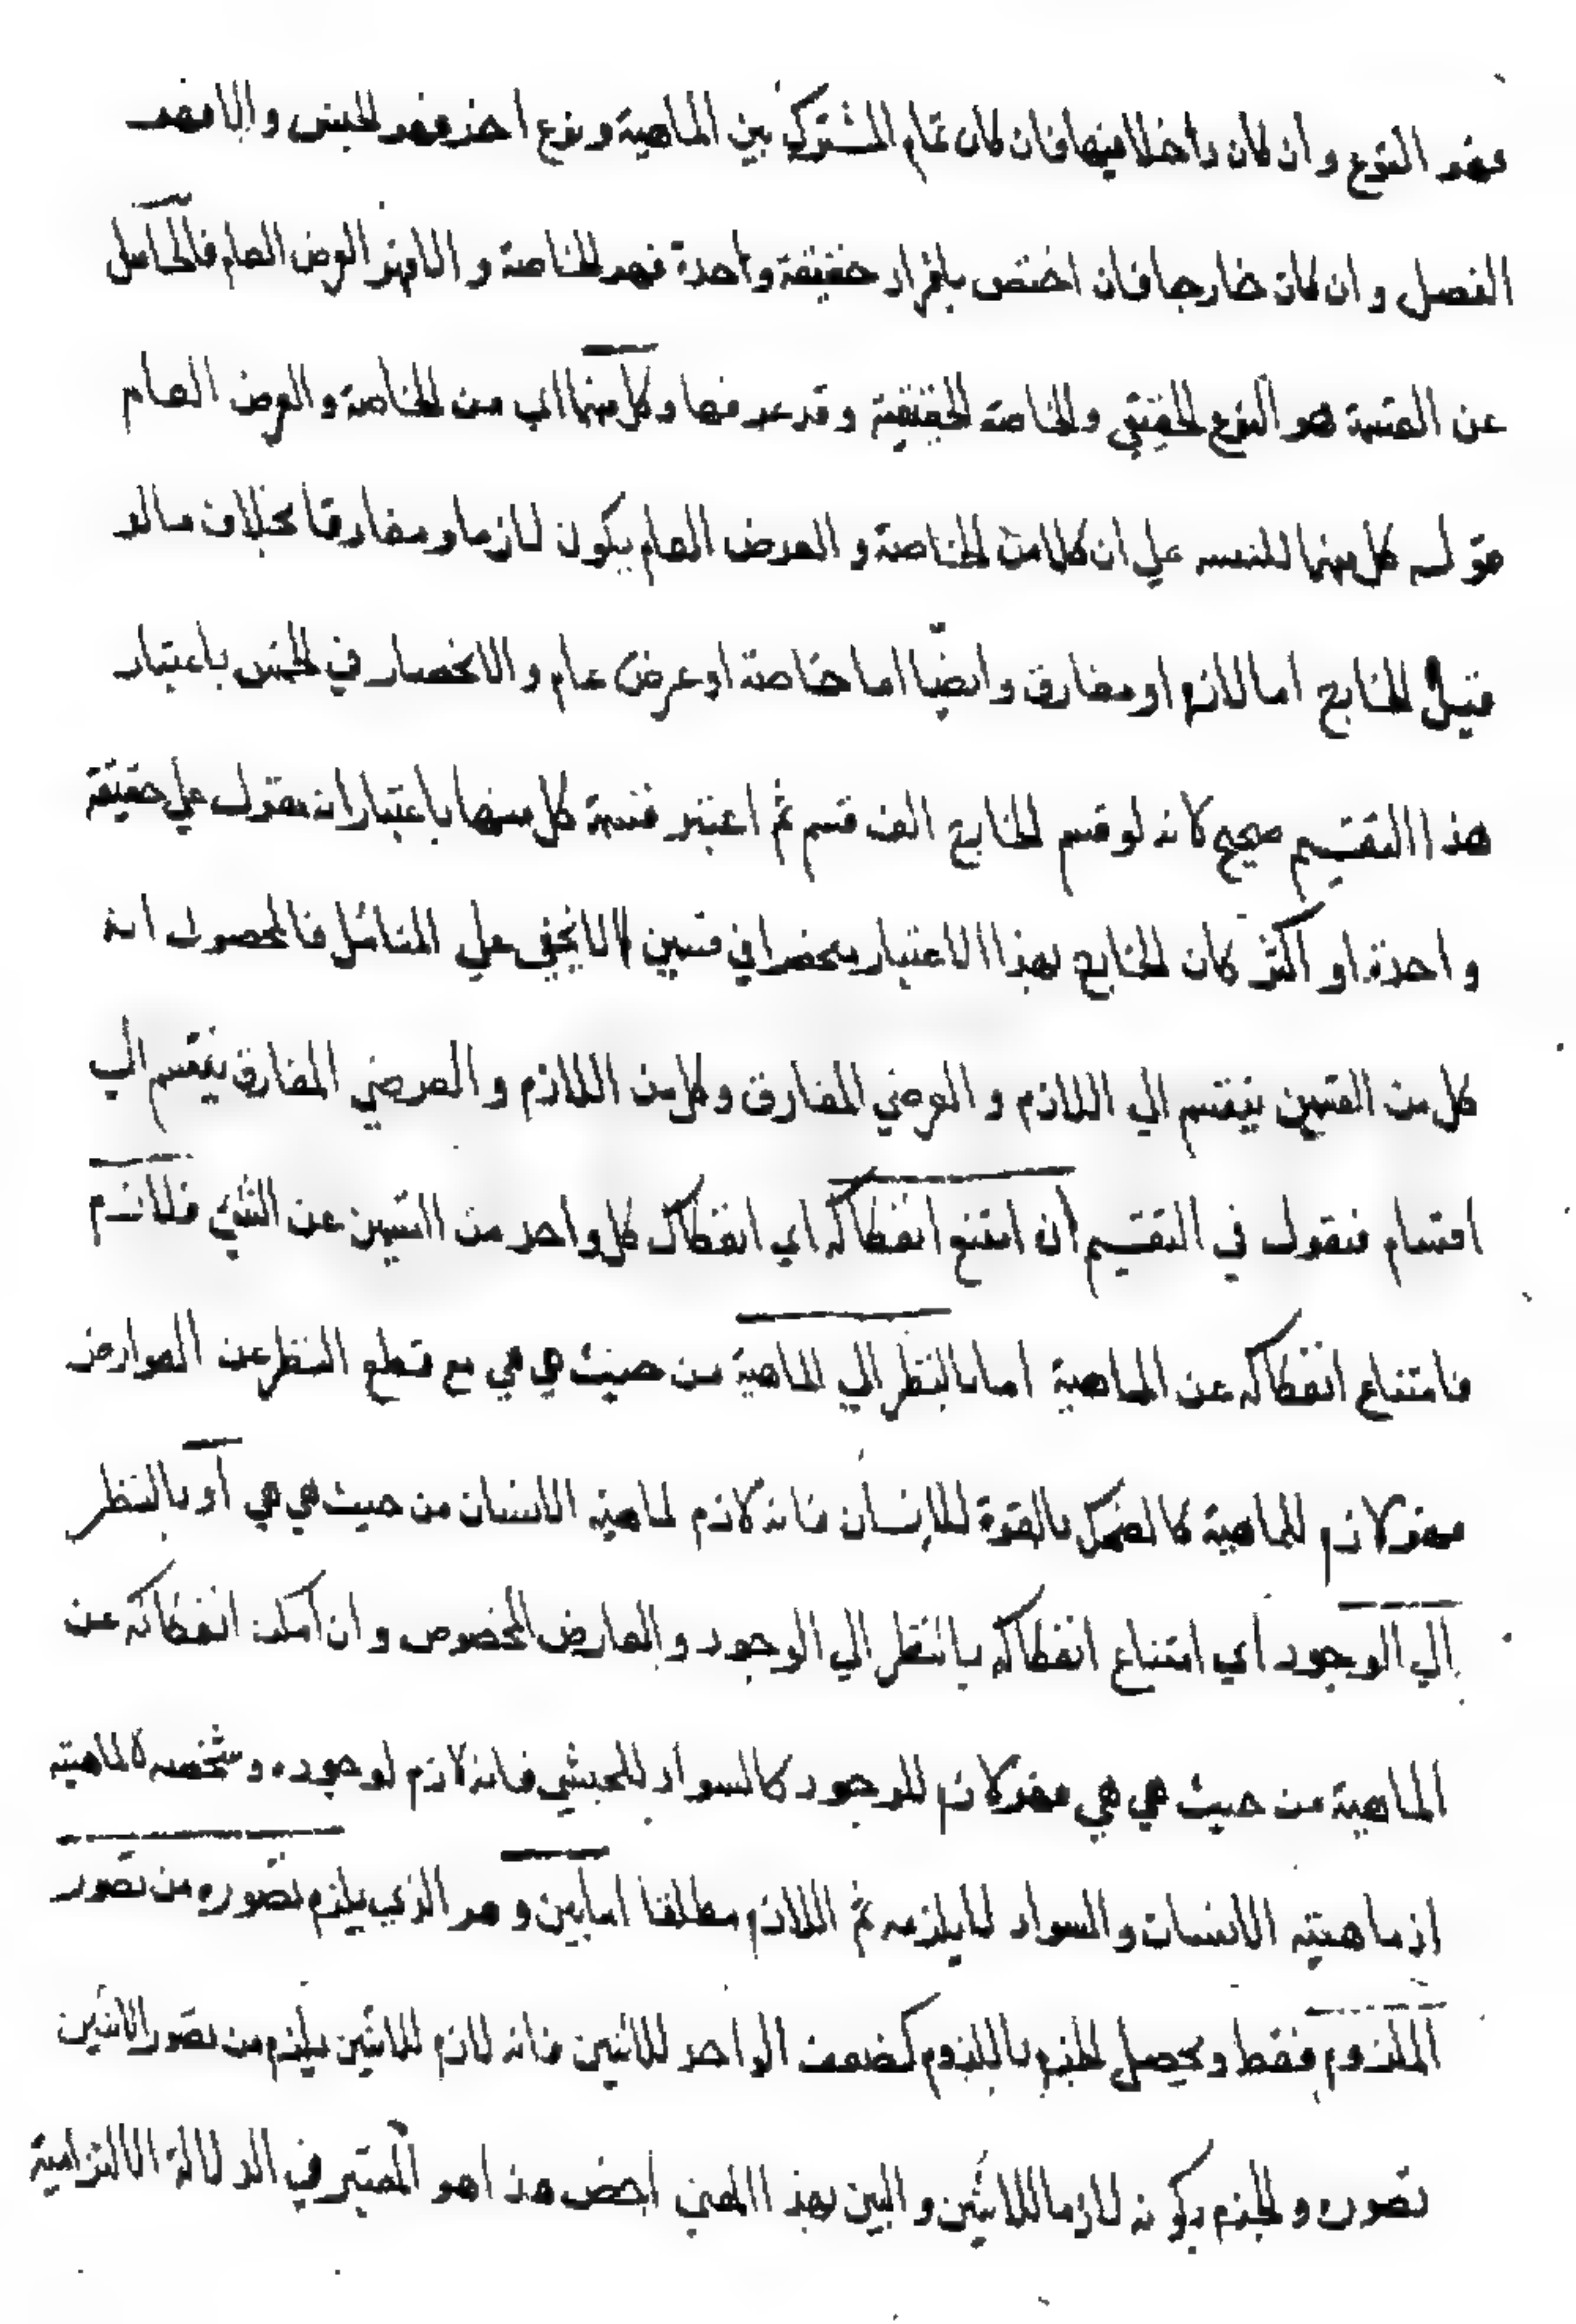 فهو النوع وان كان داخلا فيها فان كان تمام المشترك بين الماهية ونوع اخر فهو الجنس والا فهو
الفصل وان كان خارجا فان اختص بافراد حقيقة واحدة فهو الخاصة والا فهو العرض العام فالحاصل
عن القسمة هو النوع الحقيقي والخاصة الحقيقية وقد عرفها وكل منهما اي من الخاصة والعرض العام
قوله كل منهما للتنبيه علي ان كلا من الخاصة والعرض العام يكون لازما ومفارقا بخلاف مالو
قيل الخارج اما لازم او مفارق وايضا اما خاصة او عرض عام والانحصار في الخمس باعتبار
هذا التقسيم صحيح لانه لو قسم الخارج الف قسم ثم اعتبر قسمة كل منها باعتبار انه مقول علي حقيقة
واحدة او اكثر كان الخارج بهذا الاعتبار منحصرا في قسمين لا يخفي علي المتأمل فالمحصول انه
كل من القسمين ينقسم الي اللازم والعرضي المفارق وكل من اللازم والعرضي المفارق ينقسم الي
اقسام فنقول في التقسيم ان امتنع انفكاكه اي انفكاك كل واحد من القسمين عن الشئ فلازم
فامتناع انفكاكه عن الماهية اما بالنظر الي الماهية من حيث هي هي مع قطع النظر عن العوارض
فهو لازم للماهية كالضحك بالقوة للانسان فانه لازم لماهية الانسان من حيث هي هي أو بالنظر
الي الوجود اي امتناع انفكاكه بالنظر الي الوجود والعارض المخصوص وان امكن انفكاكه عن
الماهية من حيث هي هي فهو لازم للوجود كالسواد للحبشي فانه لازم لوجوده وشخصه لا لماهيته
اذ ماهيته الانسان والسواد لا يلزمه ثم اللازم مطلقا اما بين وهو الذي يلزم تصوره من تصور
الملزوم فقط ويحصل الجزم باللزوم كضعف الواحد للاثنين فانه لازم للاثنين يلزم من تصور الاثنين
تصوره والجزم بكونه لازما للاثنين والبين بهذا المعني اخص هذا هو المعتبر في الدلالة الالتزامية